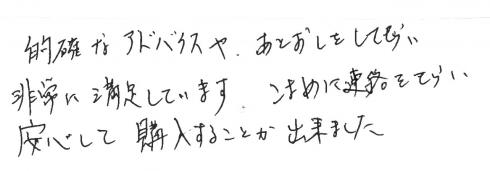 的確なアドバイスや、あとおしをしてもらい
非常に満足しています。こまめに連絡をもらい
安心して購入することが出来ました